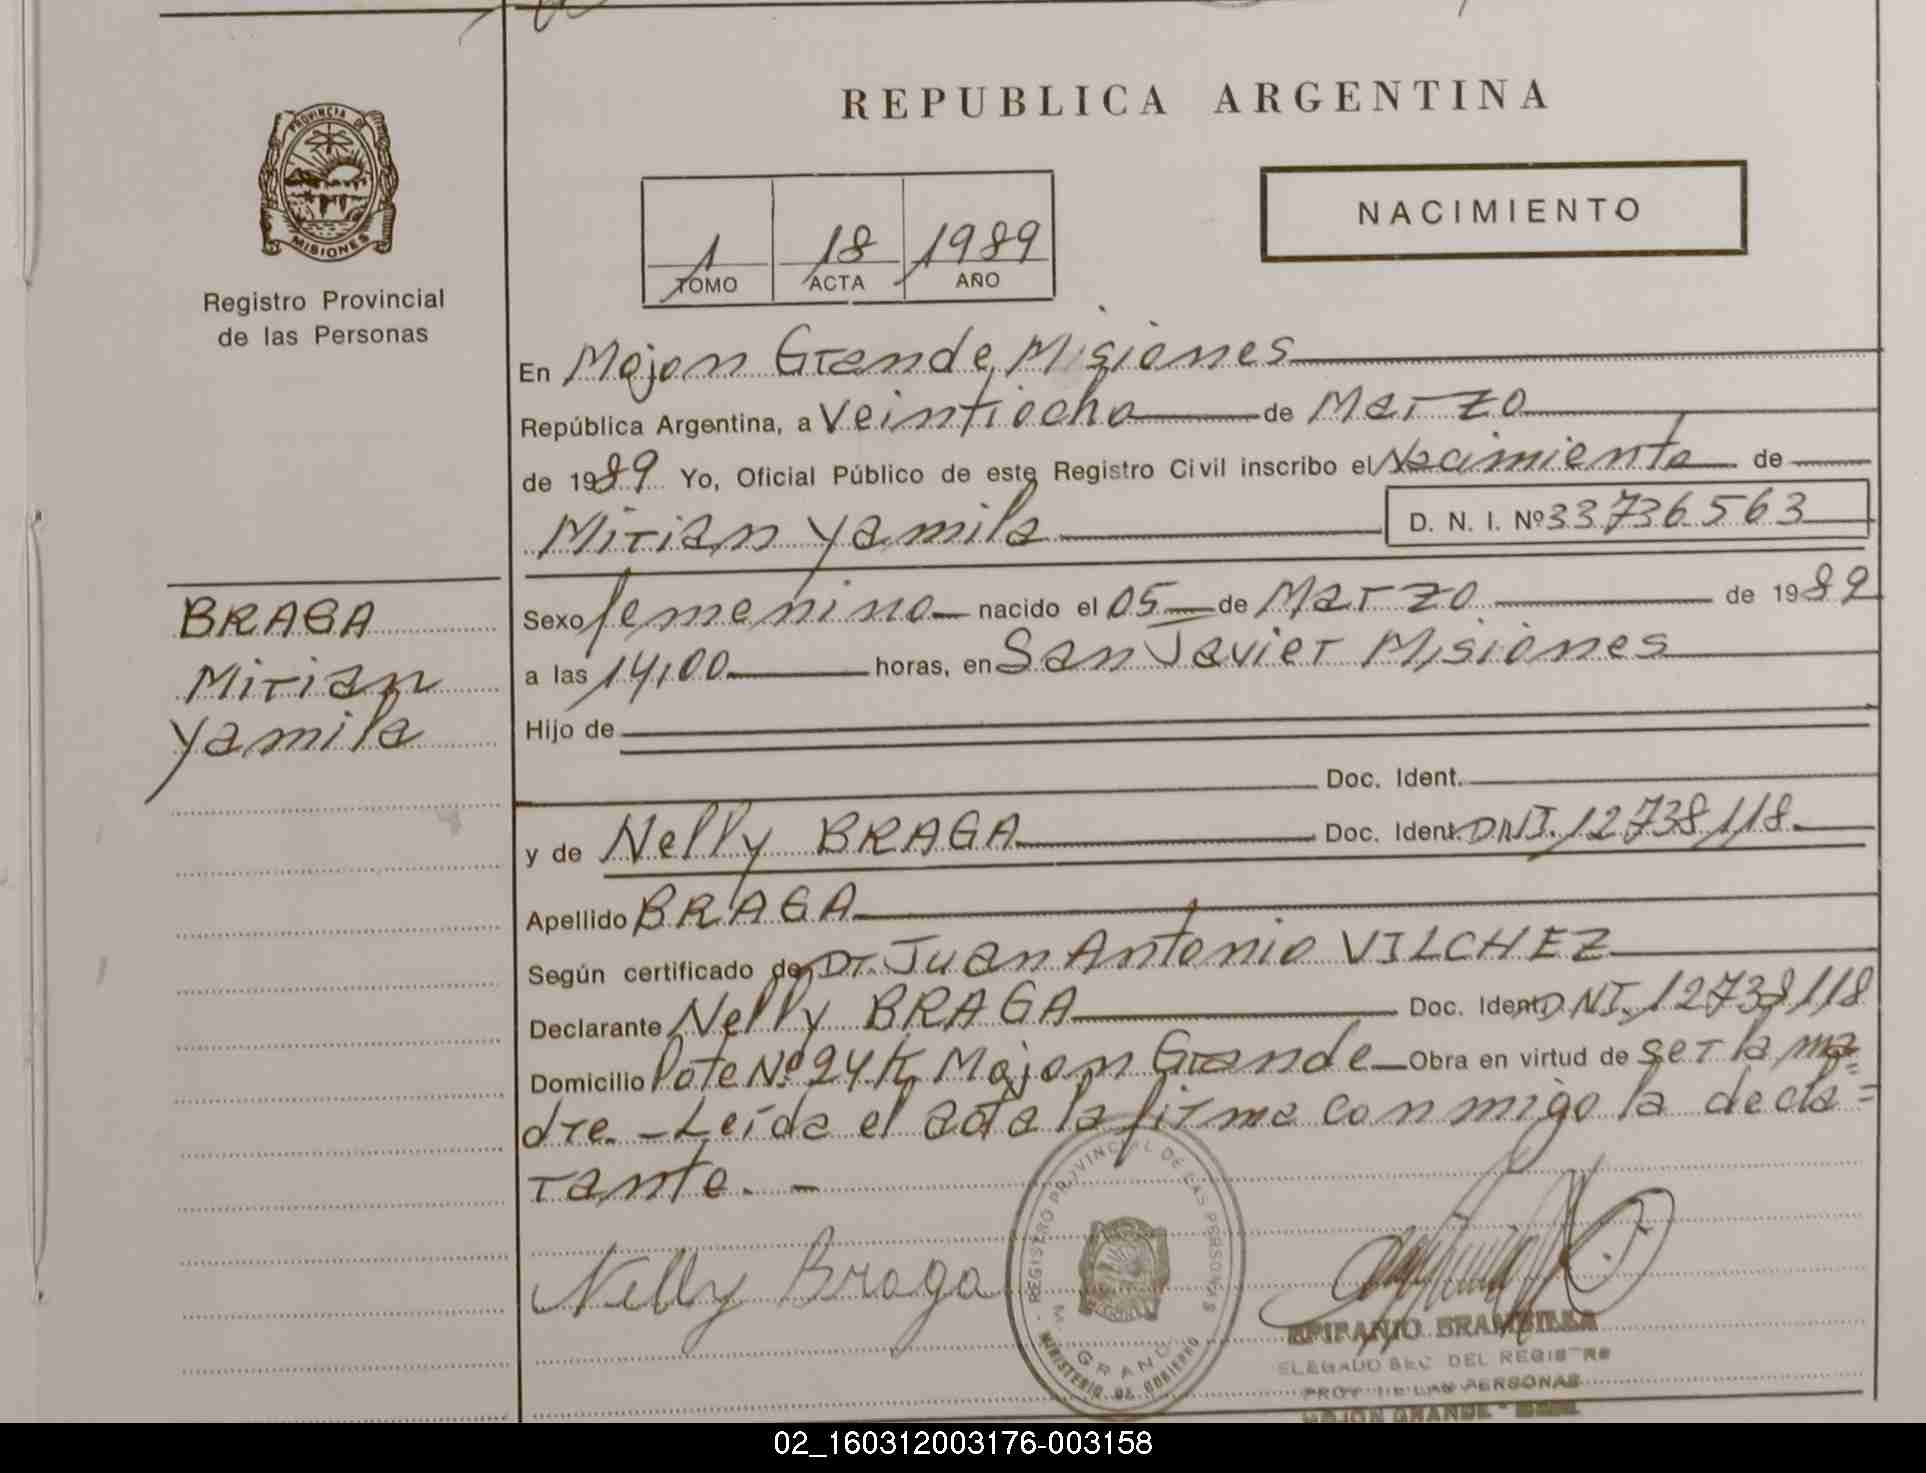 PROVINCIA DE
MISIONES
Registro Provincial
de las Personas
BRAGA
Mirian
Yamila
REPUBLICA ARGENTINA
1 18 1989
TOMO ACTA AÑO
NACIMIENTO
En Mojon Grande, Misiones
República Argentina, a Veintiocho de Marzo
de 1989 Yo, Oficial Público de este Registro Civil inscribo el Nacimiento de
Mirian Yamila D. N. I. Nº 33736563
Sexo femenino nacido el 05 de Marzo de 1989
a las 14,00 horas, en San Javier Misiones
Hijo de
Doc. Ident.
y de Nelly BRAGA Doc. Ident. DNI. 12738118
Apellido BRAGA
Según certificado de Dr. Juan Antonio VILCHEZ
Declarante Nelly BRAGA Doc. Ident. DNI. 12738118
Domicilio lote Nº 24 K Mojon Grande Obra en virtud de ser la ma=
dre. - Leída el acta la firma conmigo la decla=
rante. -
Nelly Braga
REGISTRO PROVINCIAL DE LAS PERSONAS
M. GRANDE
MINISTERIO DE GOBIERNO
EPIFANIO BRAMBILLA
DEL REGISTRO
PROV. DE LAS PERSONAS
MOJON GRANDE -
02_160312003176-003158